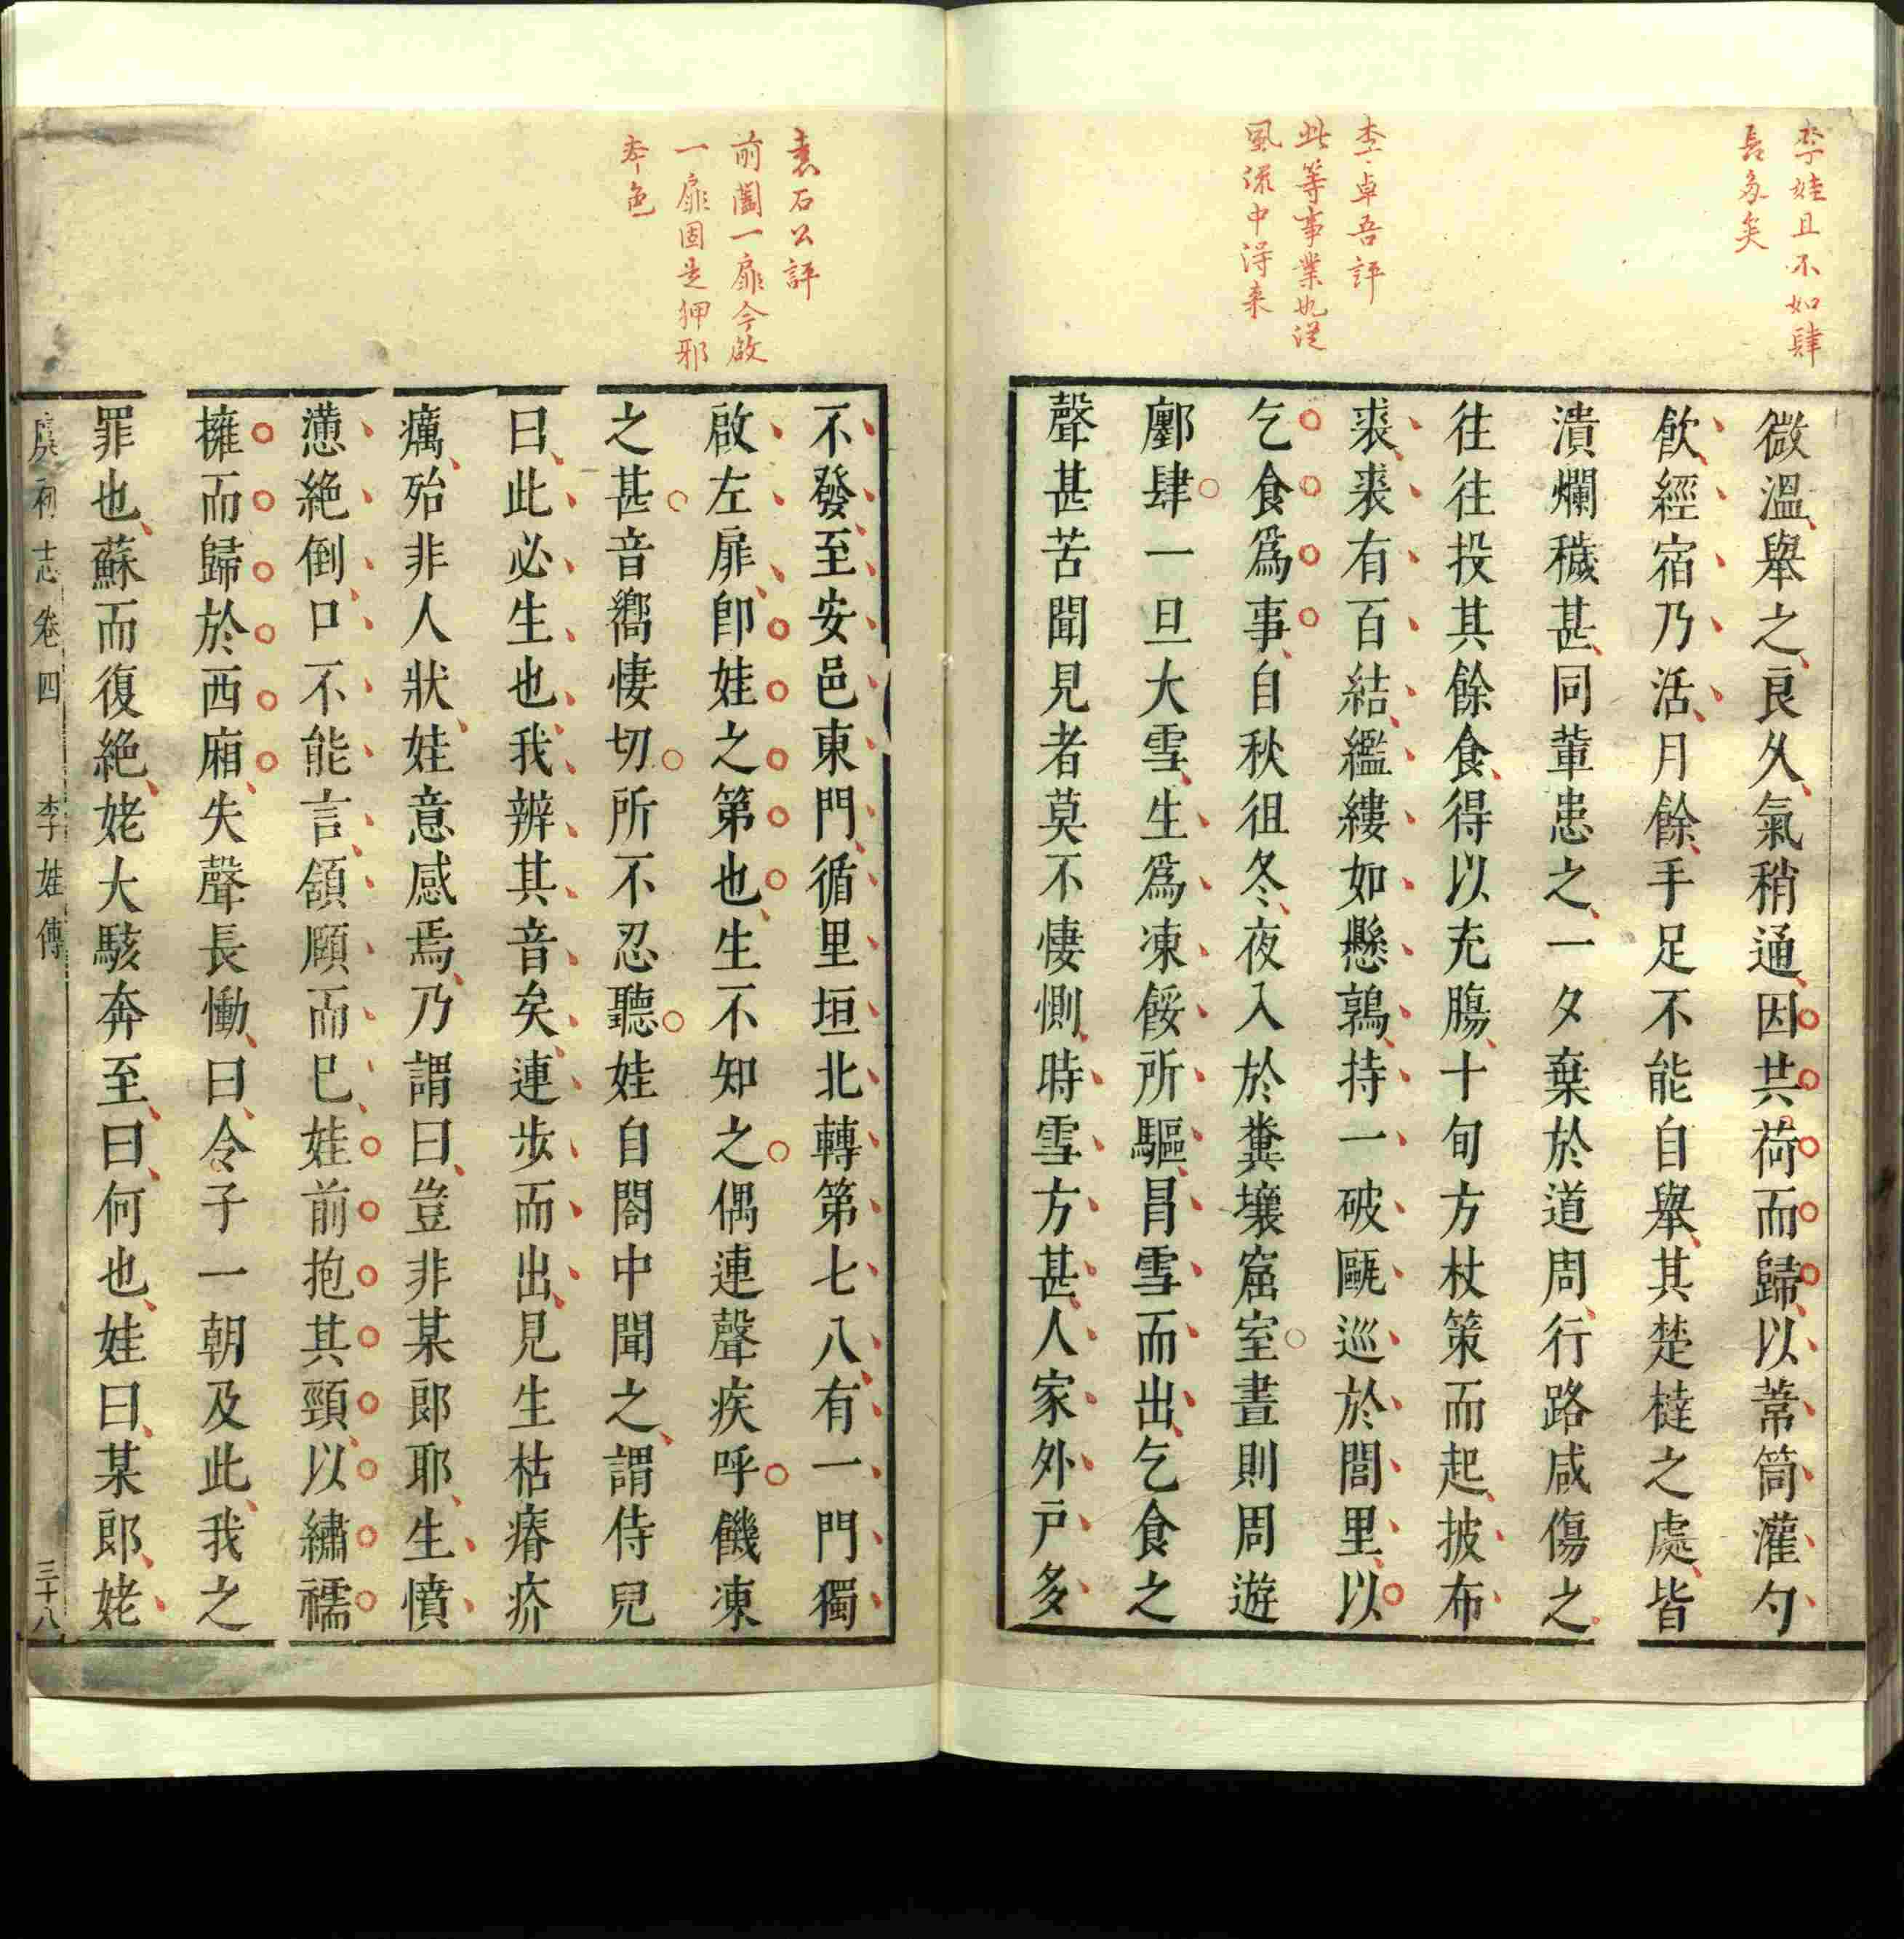 李娃且不如肆
長多矣
李卓吾評
此等事業也從
風流中得来
微溫舉之良久氣稍通因共荷而歸以葦筒灌勺
飲經宿乃活月餘手足不能自舉其楚撻之處皆
潰爛穢甚同輩患之一夕棄於道周行路咸傷之
往往投其餘食得以充腸十旬方杖策而起披布
裘裘有百結繿縷如懸鶉持一破甌巡於閭里以
乞食爲事自秋徂冬夜入於糞壤窟室晝則周遊
鄽肆一旦大雪生爲凍餒所驅冒雪而出乞食之
聲甚苦聞見者莫不悽惻時雪方甚人家外戸多
袁石公評
前闔一扉今啟
一扉固是狎邪
夲色
不發至安邑東門循里垣北轉第七八有一門獨
啟左扉卽娃之第也生不知之偶連聲疾呼饑凍
之甚音嚮悽切所不忍聽娃自閤中聞之謂侍兒
曰此必生也我辨其音矣連步而出見生枯瘠疥
癘殆非人狀娃意感焉乃謂曰豈非某郎耶生憤
懣絶倒口不能言頷頤而已娃前抱其頸以繡襦
擁而歸於西廂失聲長慟曰令子一朝及此我之
罪也蘇而復絶姥大駭奔至曰何也娃曰某郎姥
虞初志卷四 李娃傳 三十八